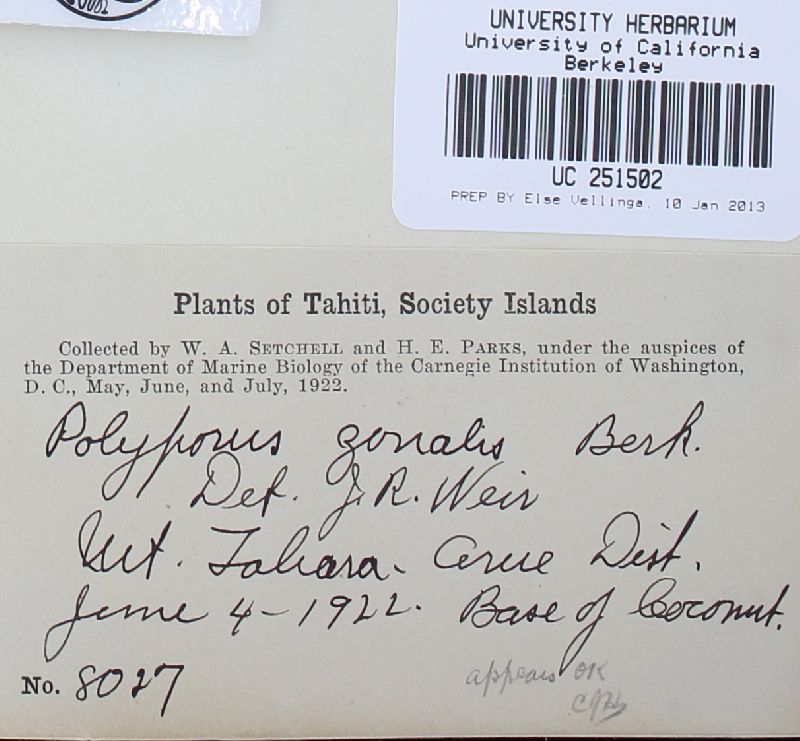 UNIVERSITY HERBARIUM
University of California
Berkeley
UC 251502
PREP BY Else Vellinga, 10 Jan 2013
Plants of Tahiti, Society Islands
Collected by W. A. SETCHELL and H. E. PARKS, under the auspices of
the Department of Marine Biology of the Carnegie Institution of Washington,
D. C., May, June, and July, 1922.
Polyporus zonalis Berk.
Det. J. R. Weir
Mt. Tahara. Arue Dist.
June 4-1922. Base of Coconut.
No. 8027
appears OK